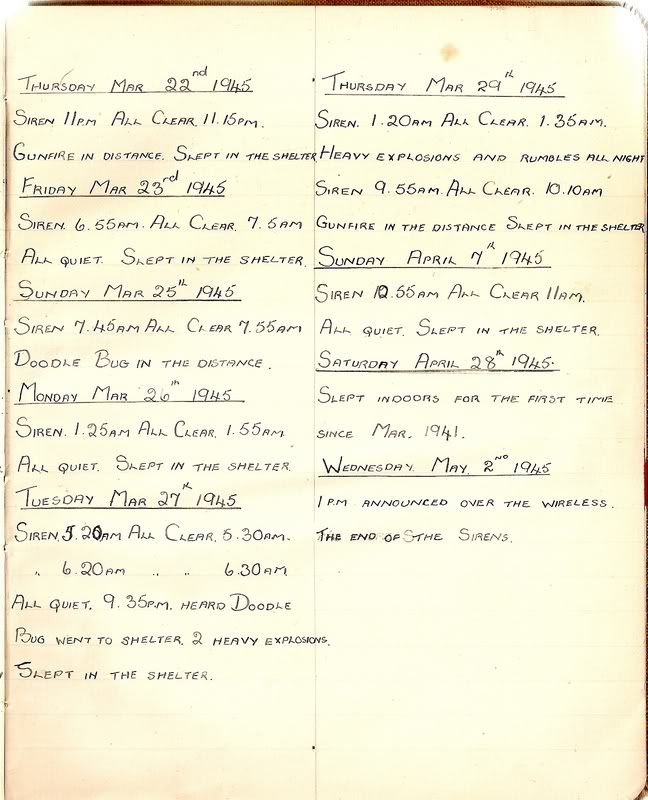 Thursday Mar 22nd 1945
Siren 11pm All Clear 11.15pm.
Gunfire in distance. Slept in the shelter
Friday Mar 23rd 1945
Siren. 6.55am. All Clear. 7.5am
All quiet. Slept in the shelter.
Sunday Mar 25th 1945
Siren 7.45am All Clear 7.55am
Doodle Bug in the distance.
Monday Mar 26th 1945
Siren. 1.25am All Clear. 1.55am.
All quiet. Slept in the shelter.
Tuesday Mar 27th 1945
Siren. 5.20am All Clear. 5.30am.
" 6.20am " " 6.30am
All quiet. 9.35pm. heard Doodle
Bug went to shelter. 2 heavy explosions.
Slept in the shelter.
Thursday Mar 29th 1945
Siren. 1.20am All Clear. 1.35am.
Heavy explosions and rumbles all night
Siren 9.55am. All Clear. 10.10am
Gunfire in the distance Slept in the shelter
Sunday April 7th 1945
Siren 10.55am All Clear 11am.
All quiet. Slept in the shelter.
Saturday April 28th 1945.
Slept indoors for the first time
since Mar. 1941.
Wednesday. May. 2nd 1945
1pm announced over the wireless.
The end of the Sirens.